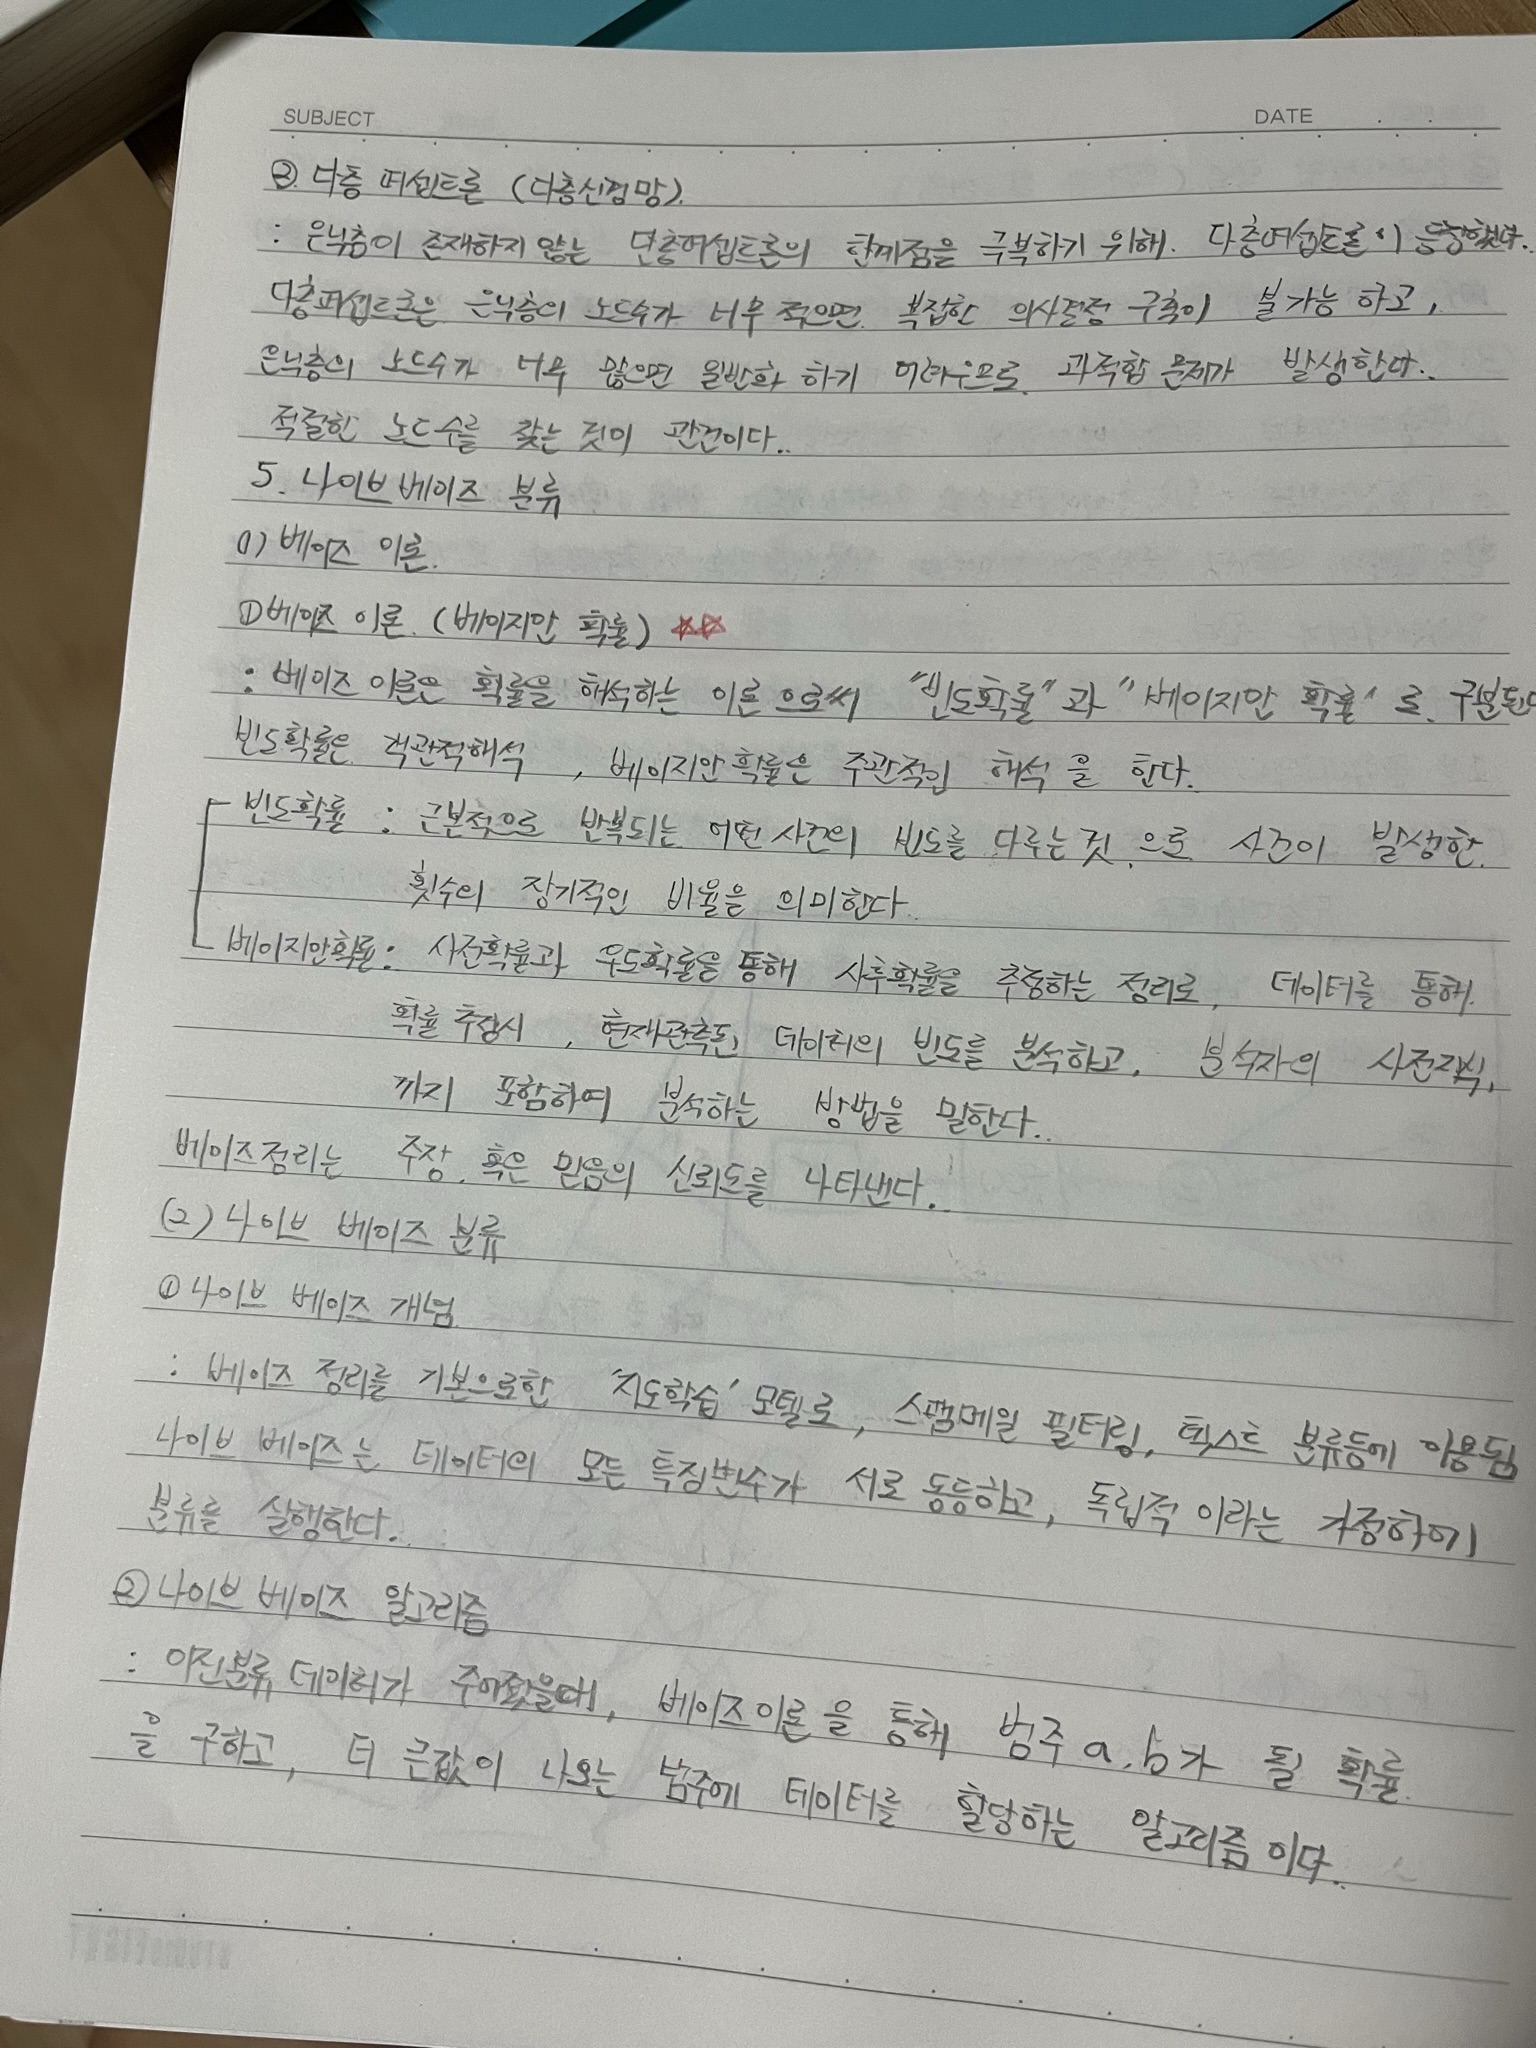 SUBJECT DATE
② 다층 퍼셉트론 (다층신경망).
: 은닉층이 존재하지 않는 단층퍼셉트론의 한계점을 극복하기 위해. 다층퍼셉트론이 등장했다.
다층퍼셉트론은 은닉층의 노드수가 너무 적으면 복잡한 의사결정 구축이 불가능 하고,
은닉층의 노드수가 너무 많으면 일반화 하기 어려우므로 과적합 문제가 발생한다..
적절한 노드수를 찾는 것이 관건이다..
5. 나이브 베이즈 분류
(1) 베이즈 이론.
① 베이즈 이론 (베이지안 확률) ☆☆
: 베이즈 이론은 확률을 해석하는 이론 으로써 "빈도확률"과 "베이지안 확률"로 구분된다
빈도확률은 객관적해석 , 베이지안 확률은 주관적인 해석을 한다.
빈도확률 : 근본적으로 반복되는 어떤 사건의 빈도를 다루는것 으로 사건이 발생한
횟수의 장기적인 비율을 의미한다
베이지안확률 : 사전확률과 우도확률을 통해 사후확률을 추정하는 정리로, 데이터를 통해
확률 추정시 , 현재관측된 데이터의 빈도를 분석하고, 분석자의 사전지식,
까지 포함하여 분석하는 방법을 말한다..
베이즈정리는 주장 혹은 믿음의 신뢰도를 나타낸다.
(2) 나이브 베이즈 분류
① 나이브 베이즈 개념
: 베이즈 정리를 기본으로한 '지도학습' 모델로, 스팸메일 필터링, 텍스트 분류등에 이용됨
나이브 베이즈는 데이터의 모든 특징변수가 서로 동등하고, 독립적 이라는 가정하에
분류를 실행한다..
② 나이브 베이즈 알고리즘
: 이진분류 데이터가 주어졌을때, 베이즈이론을 통해 범주 a, b가 될 확률
을 구하고, 더 큰값이 나오는 범주에 데이터를 할당하는 알고리즘 이다..